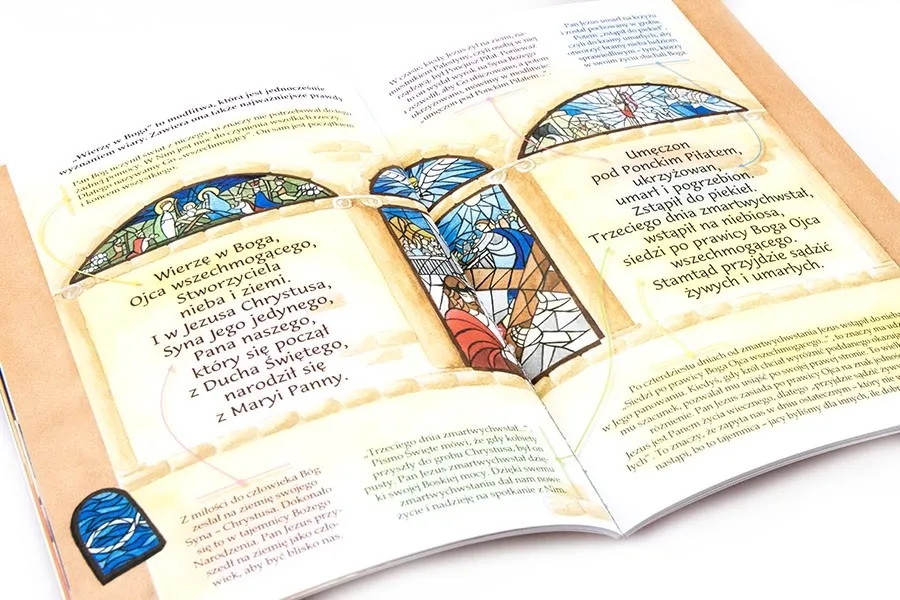 „Wierzę w Boga” to modlitwa, która jest jednocześnie
wyznaniem wiary. Zawiera ona także najważniejsze prawdy
Pan Bóg stworzył świat z niczego, to znaczy nie potrzebował do tego
żadnej pomocy. W Nim jest moc do czynienia wszelkich rzeczy.
Dlatego nazywamy Go „wszechmogący”. On sam jest początkiem
i końcem wszystkiego.
Wierzę w Boga,
Ojca wszechmogącego,
Stworzyciela
nieba i ziemi.
I w Jezusa Chrystusa,
Syna Jego jedynego,
Pana naszego,
który się począł
z Ducha Świętego,
narodził się
z Maryi Panny.
Z miłości do człowieka Bóg
zesłał na ziemię swojego
Syna – Chrystusa. Dokonało
się to w tajemnicy Bożego
Narodzenia. Pan Jezus przy-
szedł na ziemię jako czło-
wiek, aby być blisko nas.
„Trzeciego dnia zmartwychwstał..."
Pismo Święte mówi, że gdy kobiety
przyszły do grobu Chrystusa, był on
pusty. Pan Jezus zmartwychwstał dzię-
ki swojej Boskiej mocy. Dzięki swemu
zmartwychwstaniu dał nam nowe
życie i nadzieję na spotkanie z Nim.
W czasie, kiedy Jezus żył na ziemi, na-
miestnikiem Palestyny, czyli osobą w niej
rządzącą, był Poncjusz Piłat. Ponieważ
to on wydał wyrok na Syna Bożego
i zezwolił, aby Go ubiczowano, a potem
ukrzyżowano, mówimy w modlitwie:
„umęczon pod Ponckim Piłatem...”
Pan Jezus umarł na krzyżu
i został pochowany w grobie.
Potem „zstąpił do piekieł",
czyli do krainy umarłych, aby
otworzyć bramy nieba ludziom
sprawiedliwym – tym, którzy
w swoim życiu słuchali Boga.
Umęczon
pod Ponckim Piłatem,
ukrzyżowan,
umarł i pogrzebion.
Zstąpił do piekieł.
Trzeciego dnia zmartwychwstał,
wstąpił na niebiosa,
siedzi po prawicy Boga Ojca
wszechmogącego.
Stamtąd przyjdzie sądzić
żywych i umarłych.
Po czterdziestu dniach od zmartwychwstania Jezus wstąpił do nieba
„siedzi po prawicy Boga Ojca wszechmogącego”
w Jego panowaniu. Kiedyś, gdy król chciał wyróżnić poddanego okazując
mu szacunek, pozwalał mu usiąść po swojej prawej stronie. To
różnienie. Pan Jezus zasiada po prawicy Ojca na
Jezus jest Panem życia wiecznego, dlatego „przyjdzie sądzić żywych
łych”. To znaczy, że zapyta nas w dniu ostatecznym – który nie
nastąpi, bo to tajemnica – jacy byliśmy dla innych, ile dobra